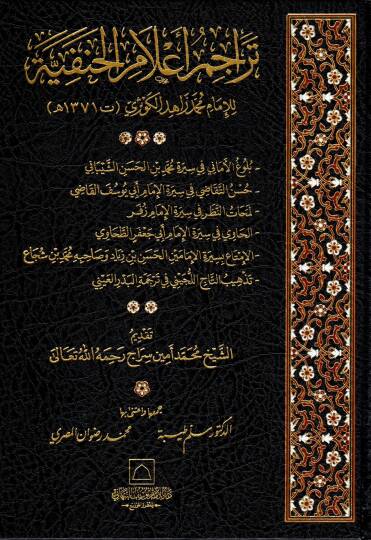 تراجم أعلام الحنفية
للإمام محمد زاهد الكوثري (ت ١٣٧١هـ)
- بلوغ الأماني في سيرة محمد بن الحسن الشيباني
- حسن التقاضي في سيرة الإمام أبي يوسف القاضي
- لمحات النظر في سيرة الإمام زفر
- الحاوي في سيرة الإمام أبي جعفر الطحاوي
- الإمتاع بسيرة الإمامين الحسن بن زياد وصاحبه محمد بن شجاع
- تذهيب التاج اللجيني في ترجمة البدر العيني
تقديم
الشيخ محمد أمين سراج رحمه الله تعالى
جمعها واعتنى بها
الدكتور سليم طيبة محمد رضوان المصري